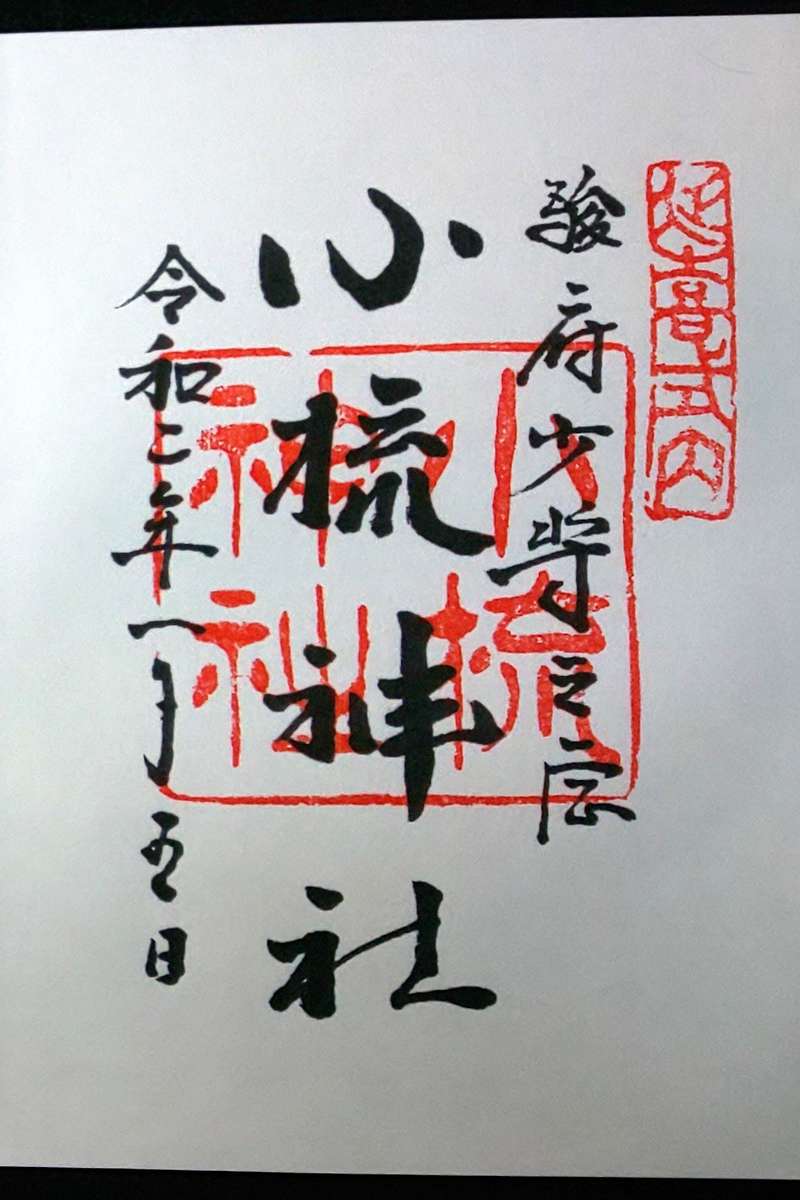 延喜式内
駿府少将之宮
小梳神社
小梳神社
令和二年一月五日